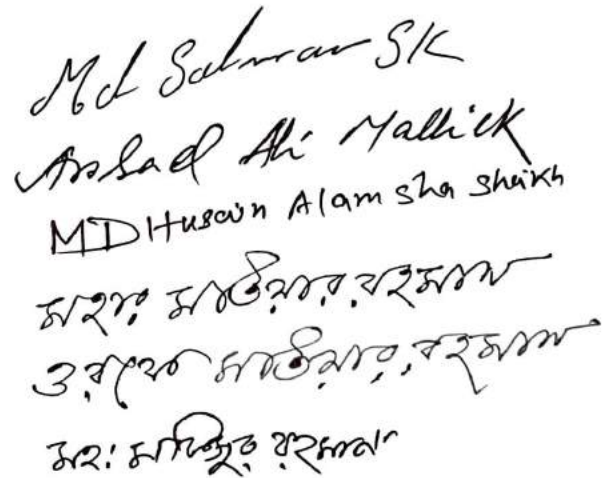 Md Salman SK
Arsad Ali Mallick
MD Husain Alam sha sheikh
মহঃ মতিয়ার রহমান
মতিয়ার রহমান
মহঃ রহমান